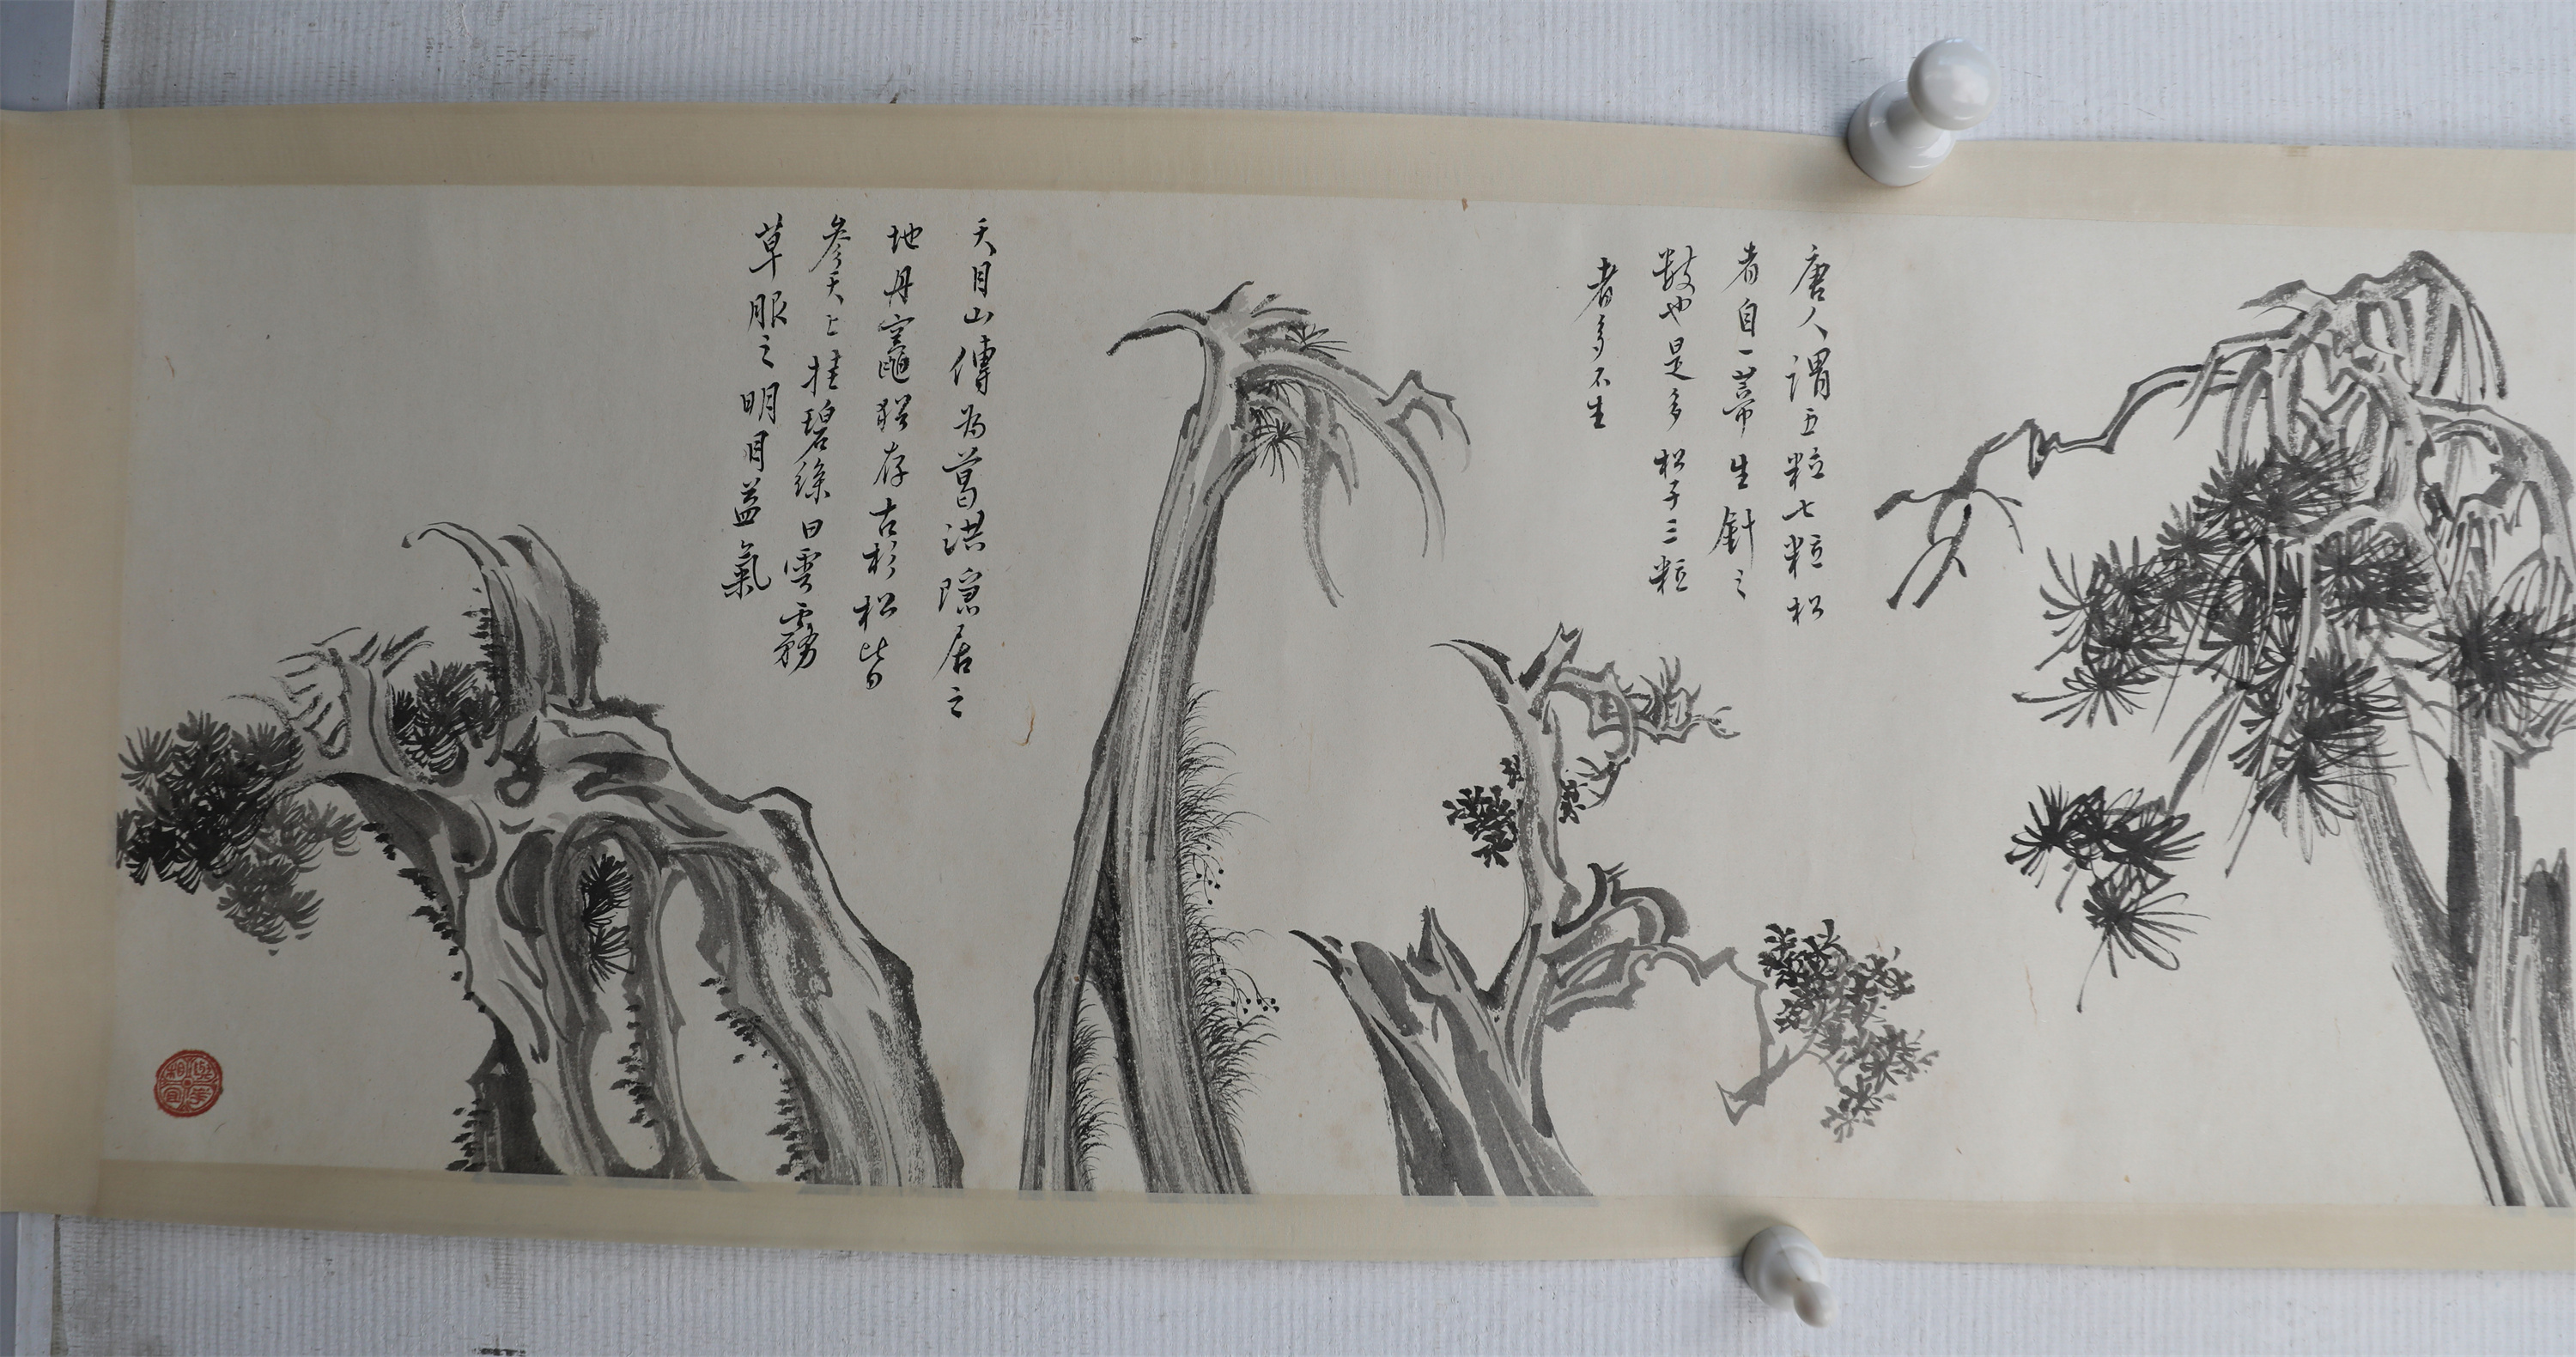 唐人謂五粒七粒松
者自一蒂生針之
數也是多松子三粒
者多不生
天目山傳為葛洪隱居之
地丹竈猶存古杉松皆
參天上挂碧絲曰雲霧
草服之明目益氣